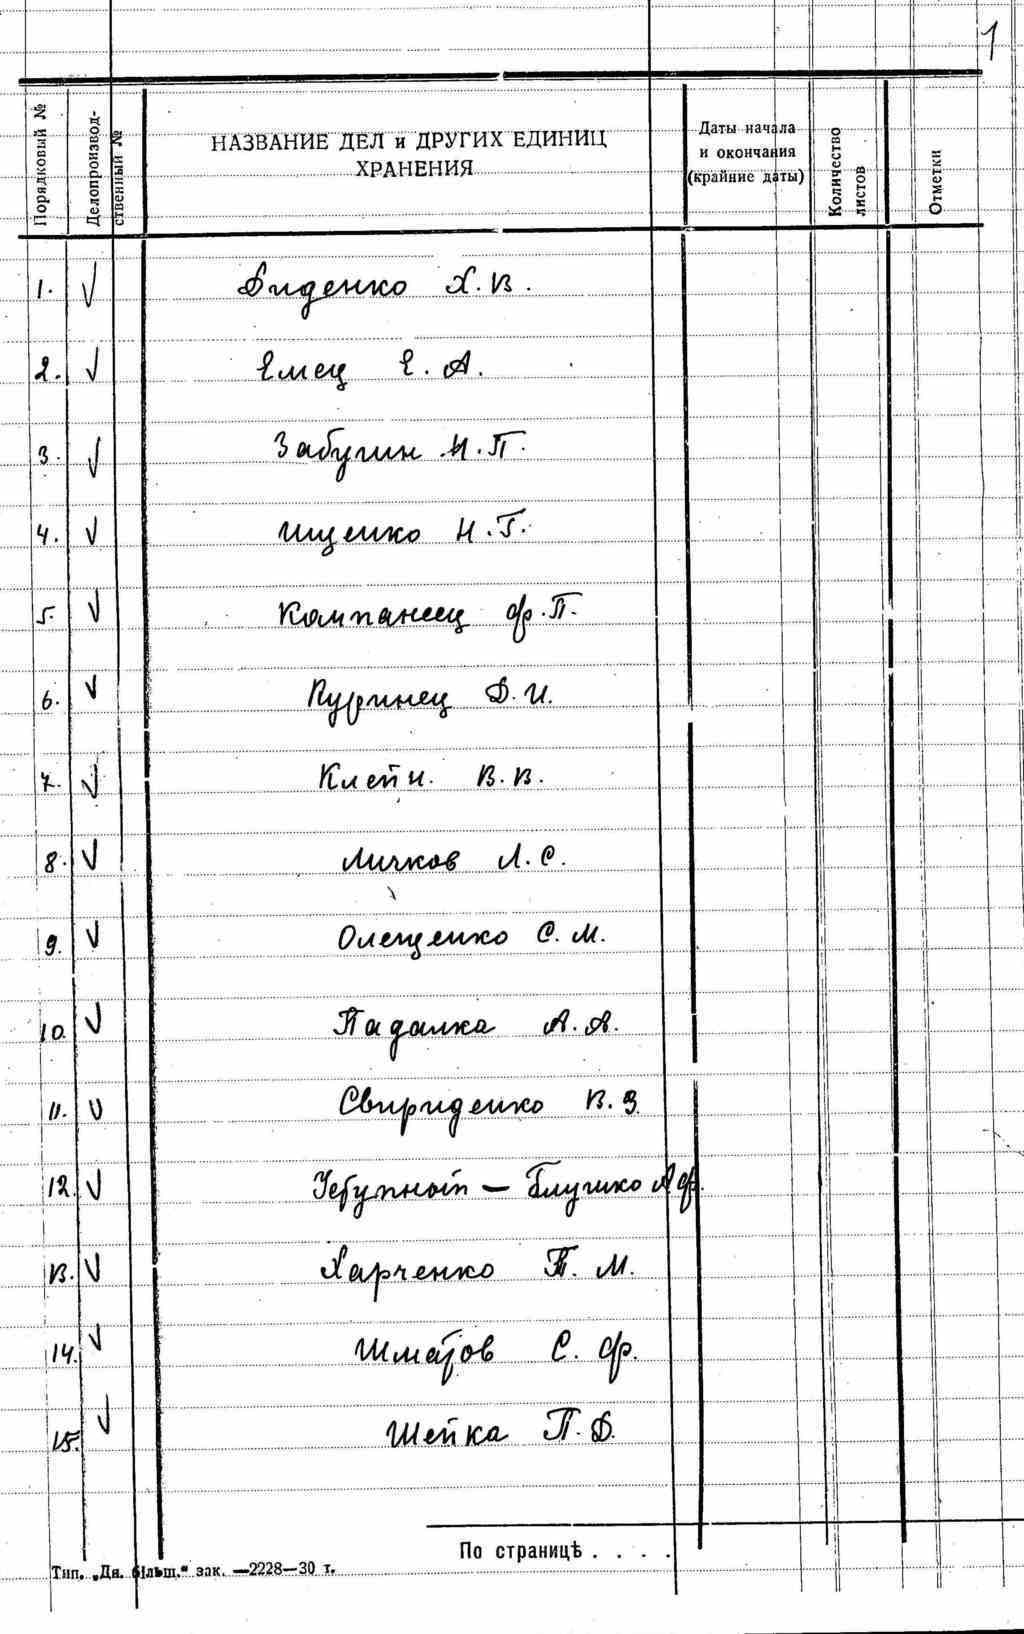 1
Порядковый № Делопроизвод-ственный № НАЗВАНИЕ ДЕЛ и ДРУГИХ ЕДИНИЦ ХРАНЕНИЯ Даты начала и окончания (крайние даты) Количество листов Отметки
1. Диденко Х. В.
2. Емец Е. А.
3. Забугин Н. П.
4. Ищенко Н. Г.
5. Компанеец Ф. П.
6. Пуринец Д. И.
7. Клейн. В. В.
8. Личков Л. С.
9. Олещенко С. М.
10. Падалка А. А.
11. Свириденко В. З.
12. — Глушко А Ф.
13. Харченко П. М.
14. Шматов С. Ф.
15. Шейка П. Д.
По страницѣ . . . .
Тип. „Дн. більш." зак. —2228—30 т.